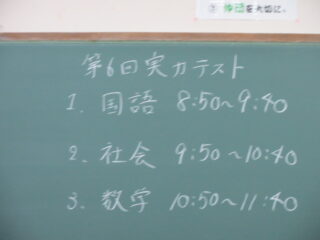 ③ 仲間を大切に。
第6回実力テスト
1. 国語 8:50～9:40
2. 社会 9:50～10:40
3. 数学 10:50～11:40